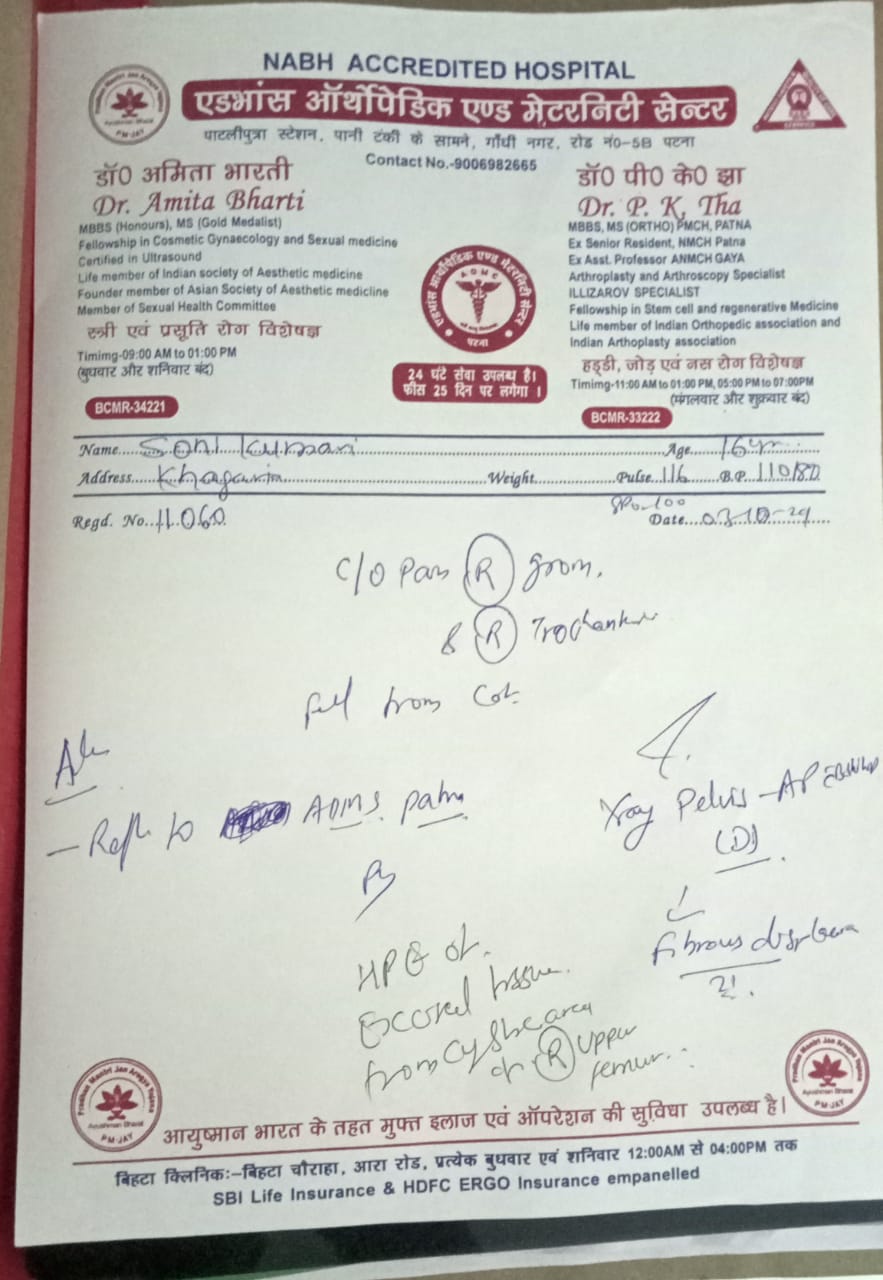 NABH ACCREDITED HOSPITAL
एडभांस ऑर्थोपेडिक एण्ड मेटरनिटी सेन्टर
पाटलीपुत्रा स्टेशन, पानी टंकी के सामने, गाँधी नगर, रोड नं०-5B पटना
Contact No.-9006982665
डॉ० अमिता भारती
Dr. Amita Bharti
MBBS (Honours), MS (Gold Medalist)
Fellowship in Cosmetic Gynaecology and Sexual medicine
Certified in Ultrasound
Life member of Indian society of Aesthetic medicine
Founder member of Asian Society of Aesthetic medicline
Member of Sexual Health Committee
स्त्री एवं प्रसूति रोग विशेषज्ञ
Timimg-09:00 AM to 01:00 PM
(बुधवार और शनिवार बंद)
BCMR-34221
एडभांस ऑर्थोपेडिक एण्ड मेटरनिटी सेन्टर
AOMC
पटना
24 घंटे सेवा उपलब्ध है।
फीस 25 दिन पर लगेगा।
डॉ० पी० के० झा
Dr. P. K, Tha
MBBS, MS (ORTHO) PMCH, PATNA
Ex Senior Resident, NMCH Patna
Ex Asst. Professor ANMCH GAYA
Arthroplasty and Arthroscopy Specialist
ILLIZAROV SPECIALIST
Fellowship in Stem cell and regenerative Medicine
Life member of Indian Orthopedic association and
Indian Arthoplasty association
हड्डी, जोड़ एवं नस रोग विशेषज्ञ
Timimg-11:00 AM to 01:00 PM, 05:00 PM to 07:00PM
(मंगलवार और शुक्रवार बंद)
BCMR-33222
Name Soni Kumari Age 16yr
Address Khagaria Weight Pulse 116 B.P. 110/80
SPO2-100
Regd. No. 11060 Date 03-10-24
C/O Pain (R) groin.
& (R) Trochanter
fall from Cot
Adv
- Refer to AIIMS Patna
Xray Pelvis - AP
(D)
fibrous dysplasia
?
HPE of
Excised tissue
from cystic area
of (R) upper
femur
Pradhan Mantri Jan Arogya Yojana
Ayushman Bharat
PM-JAY
आयुष्मान भारत के तहत मुफ्त इलाज एवं ऑपरेशन की सुविधा उपलब्ध है।
बिहटा क्लिनिकः-बिहटा चौराहा, आरा रोड, प्रत्येक बुधवार एवं शनिवार 12:00AM से 04:00PM तक
SBI Life Insurance & HDFC ERGO Insurance empanelled